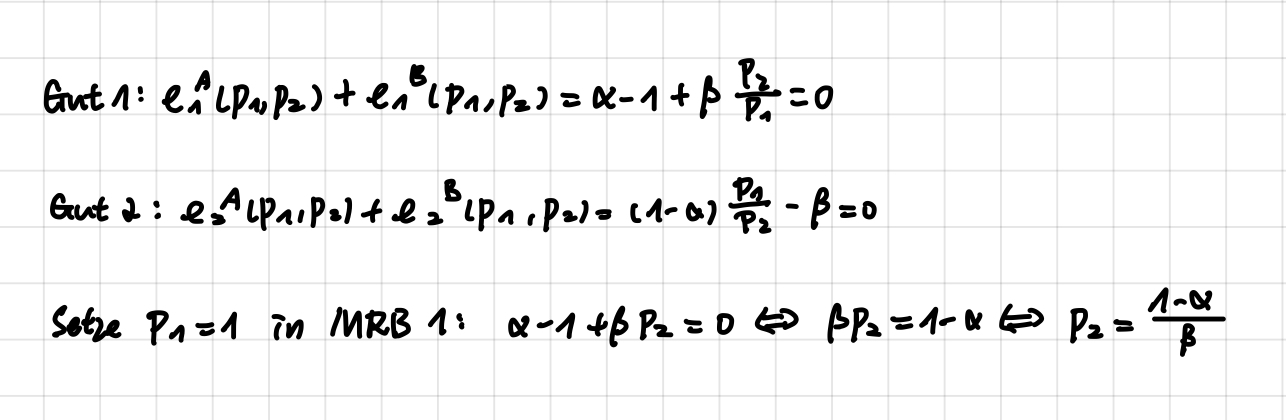 Gut 1: e₁ᴬ(p₁,p₂) + e₁ᴮ(p₁,p₂) = α-1 + β p₂/p₁ = 0
Gut 2: e₂ᴬ(p₁,p₂) + e₂ᴮ(p₁,p₂) = (1-α) p₁/p₂ - β = 0
Setze p₁=1 in MRB 1: α-1+β p₂ = 0 ⇔ βp₂ = 1-α ⇔ p₂ = (1-α)/β